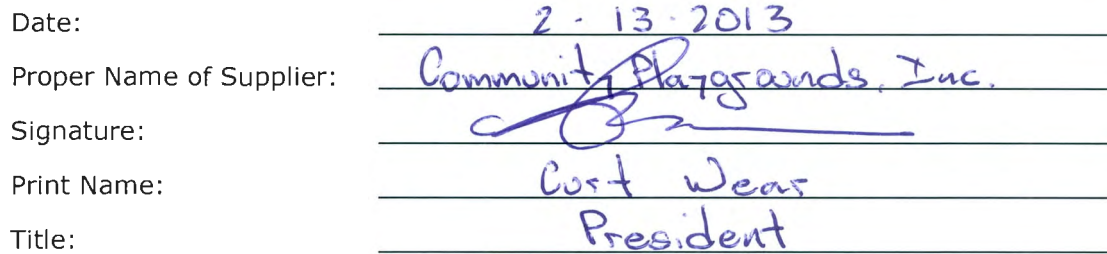 Date: 2-13-2013
Proper Name of Supplier: Community Playgrounds, Inc.
Signature:
Print Name: Curt Wear
Title: President